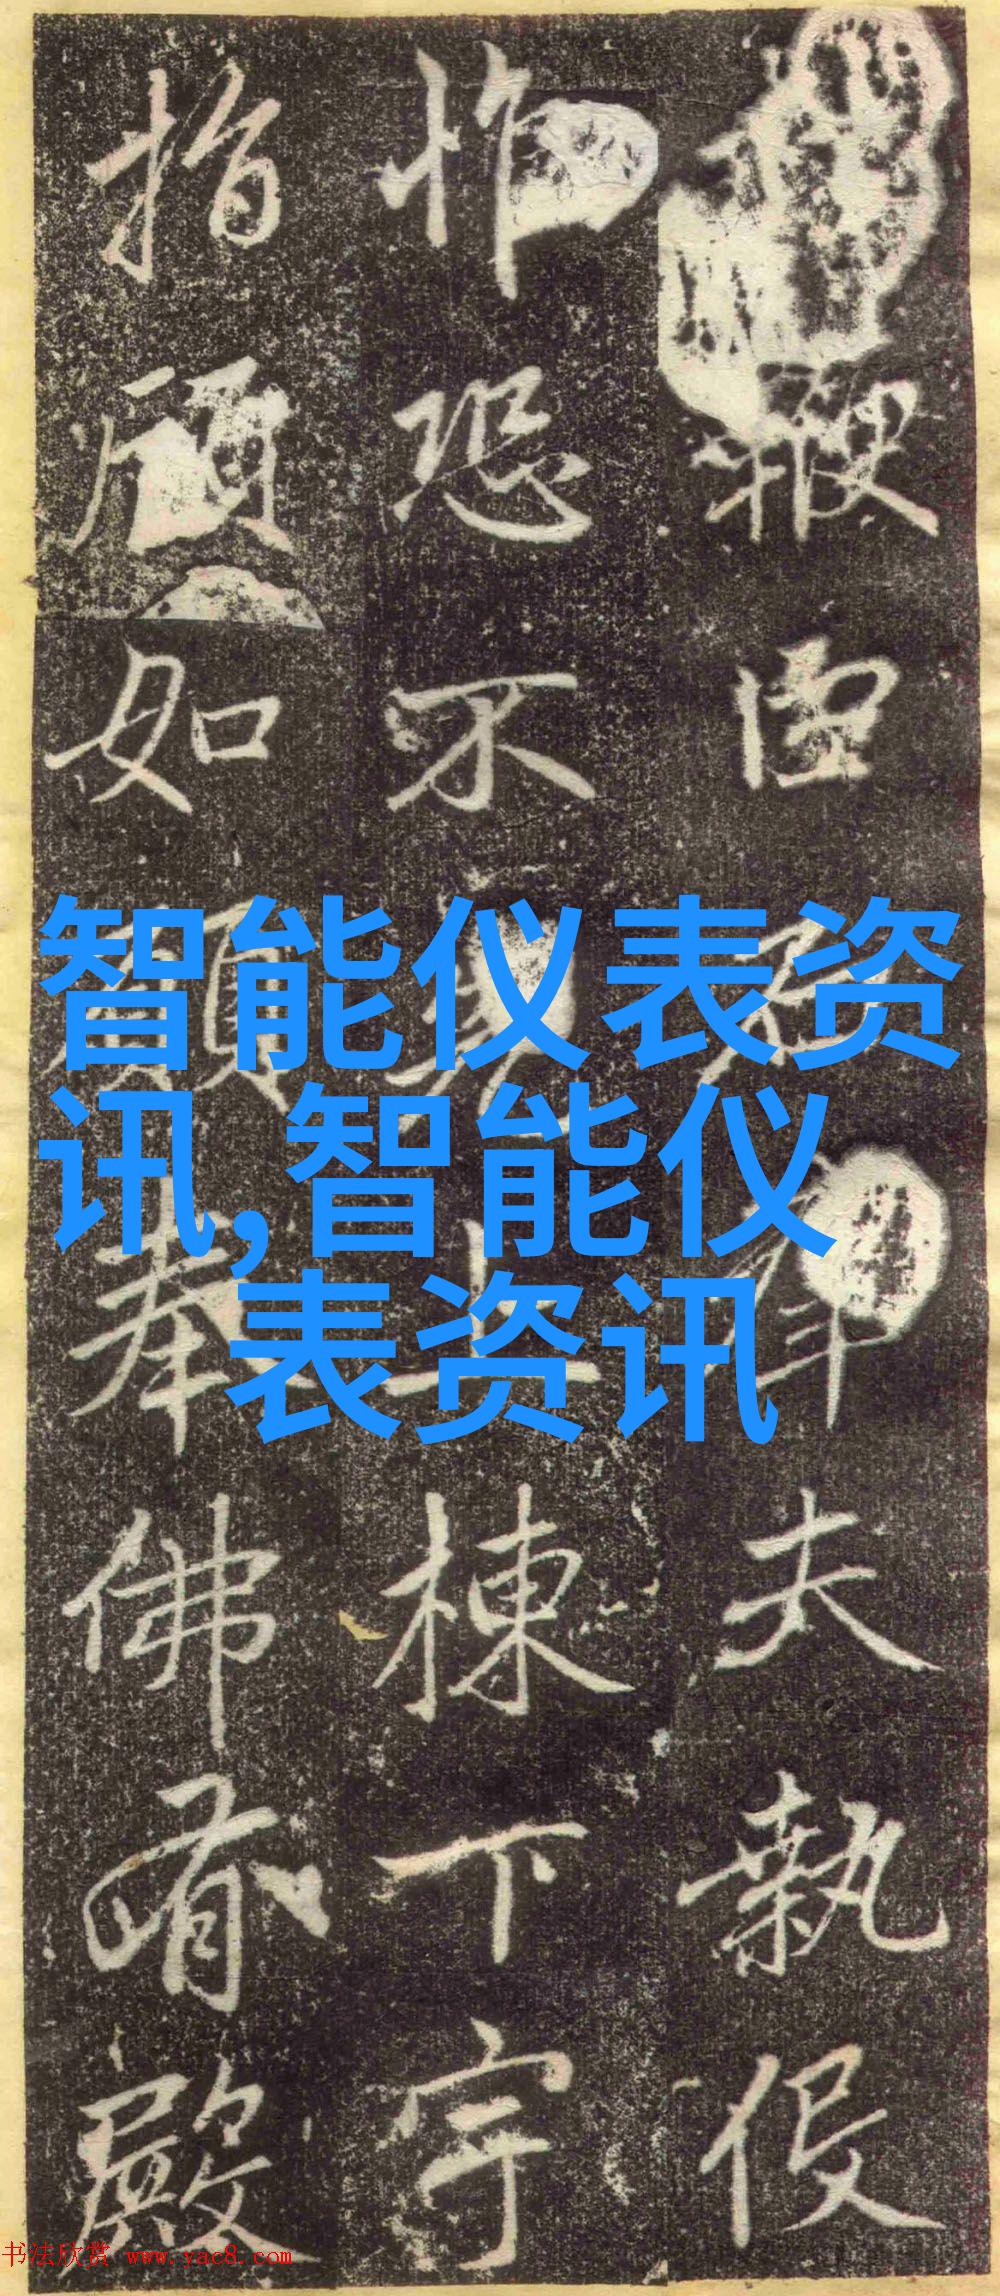 鞭夫執役
恐不上棟下宇
指顧如奉佛有殿
智能仪表资
讯,智能仪
表资讯
书法欣赏 www.yac8.com